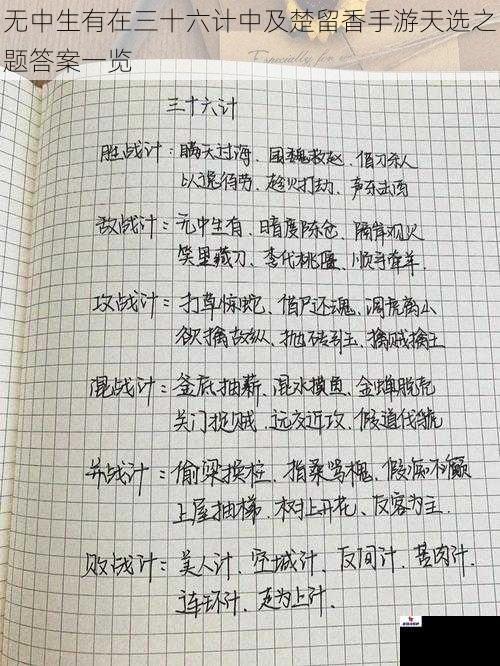 无中生有在三十六计中及楚留香手游天选之
题答案一览
三十六计
胜战计：瞒天过海、围魏救赵、借刀杀人
以逸待劳、趁火打劫、声东击西
敌战计：无中生有、暗度陈仓、隔岸观火
笑里藏刀、李代桃僵、顺手牵羊.
攻战计：打草惊蛇、借尸还魂、调虎离山
欲擒故纵、抛砖引玉、擒贼擒王
混战计：釜底抽薪、混水摸鱼、金蝉脱壳
关门捉贼、远交近攻、假道伐虢
并战计：偷梁换柱、指桑骂槐、假痴不癫
上屋抽梯、树上开花、反客为主.
败战计：美人计、空城计、反间计、苦肉计.
连环计、走为上计.